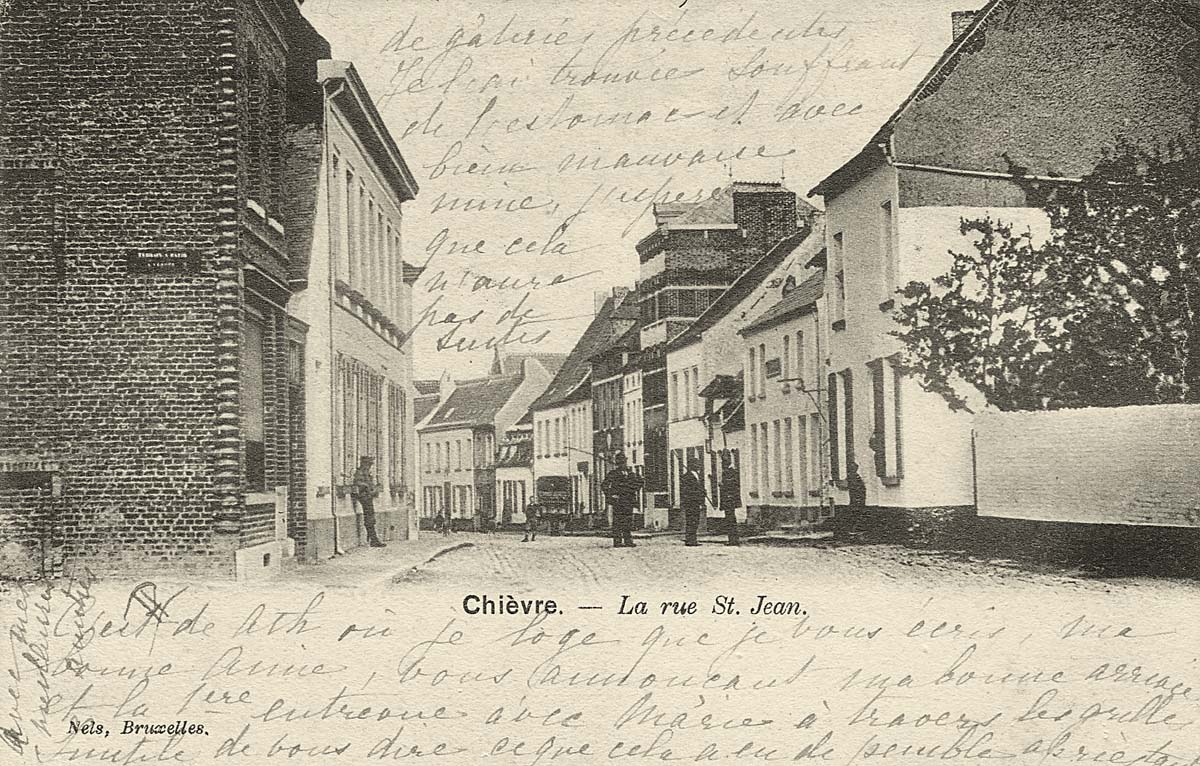 de galeries précédentes
Je l'ai trouvée souffrant
de l'estomac et avec
bien mauvaise
mine, j'espère
que cela
n'aura
pas de
suites
TERRAIN A BATIR
Chièvre. — La rue St. Jean.
C'est de Ath où je loge que je vous écris ma
bonne Amie, vous annonçant ma bonne arrivée
et la 1ère entrevue avec Marie à travers les grilles
Nels, Bruxelles.
Inutile de vous dire ce que cela a eu de semblable
avec mes
meilleures